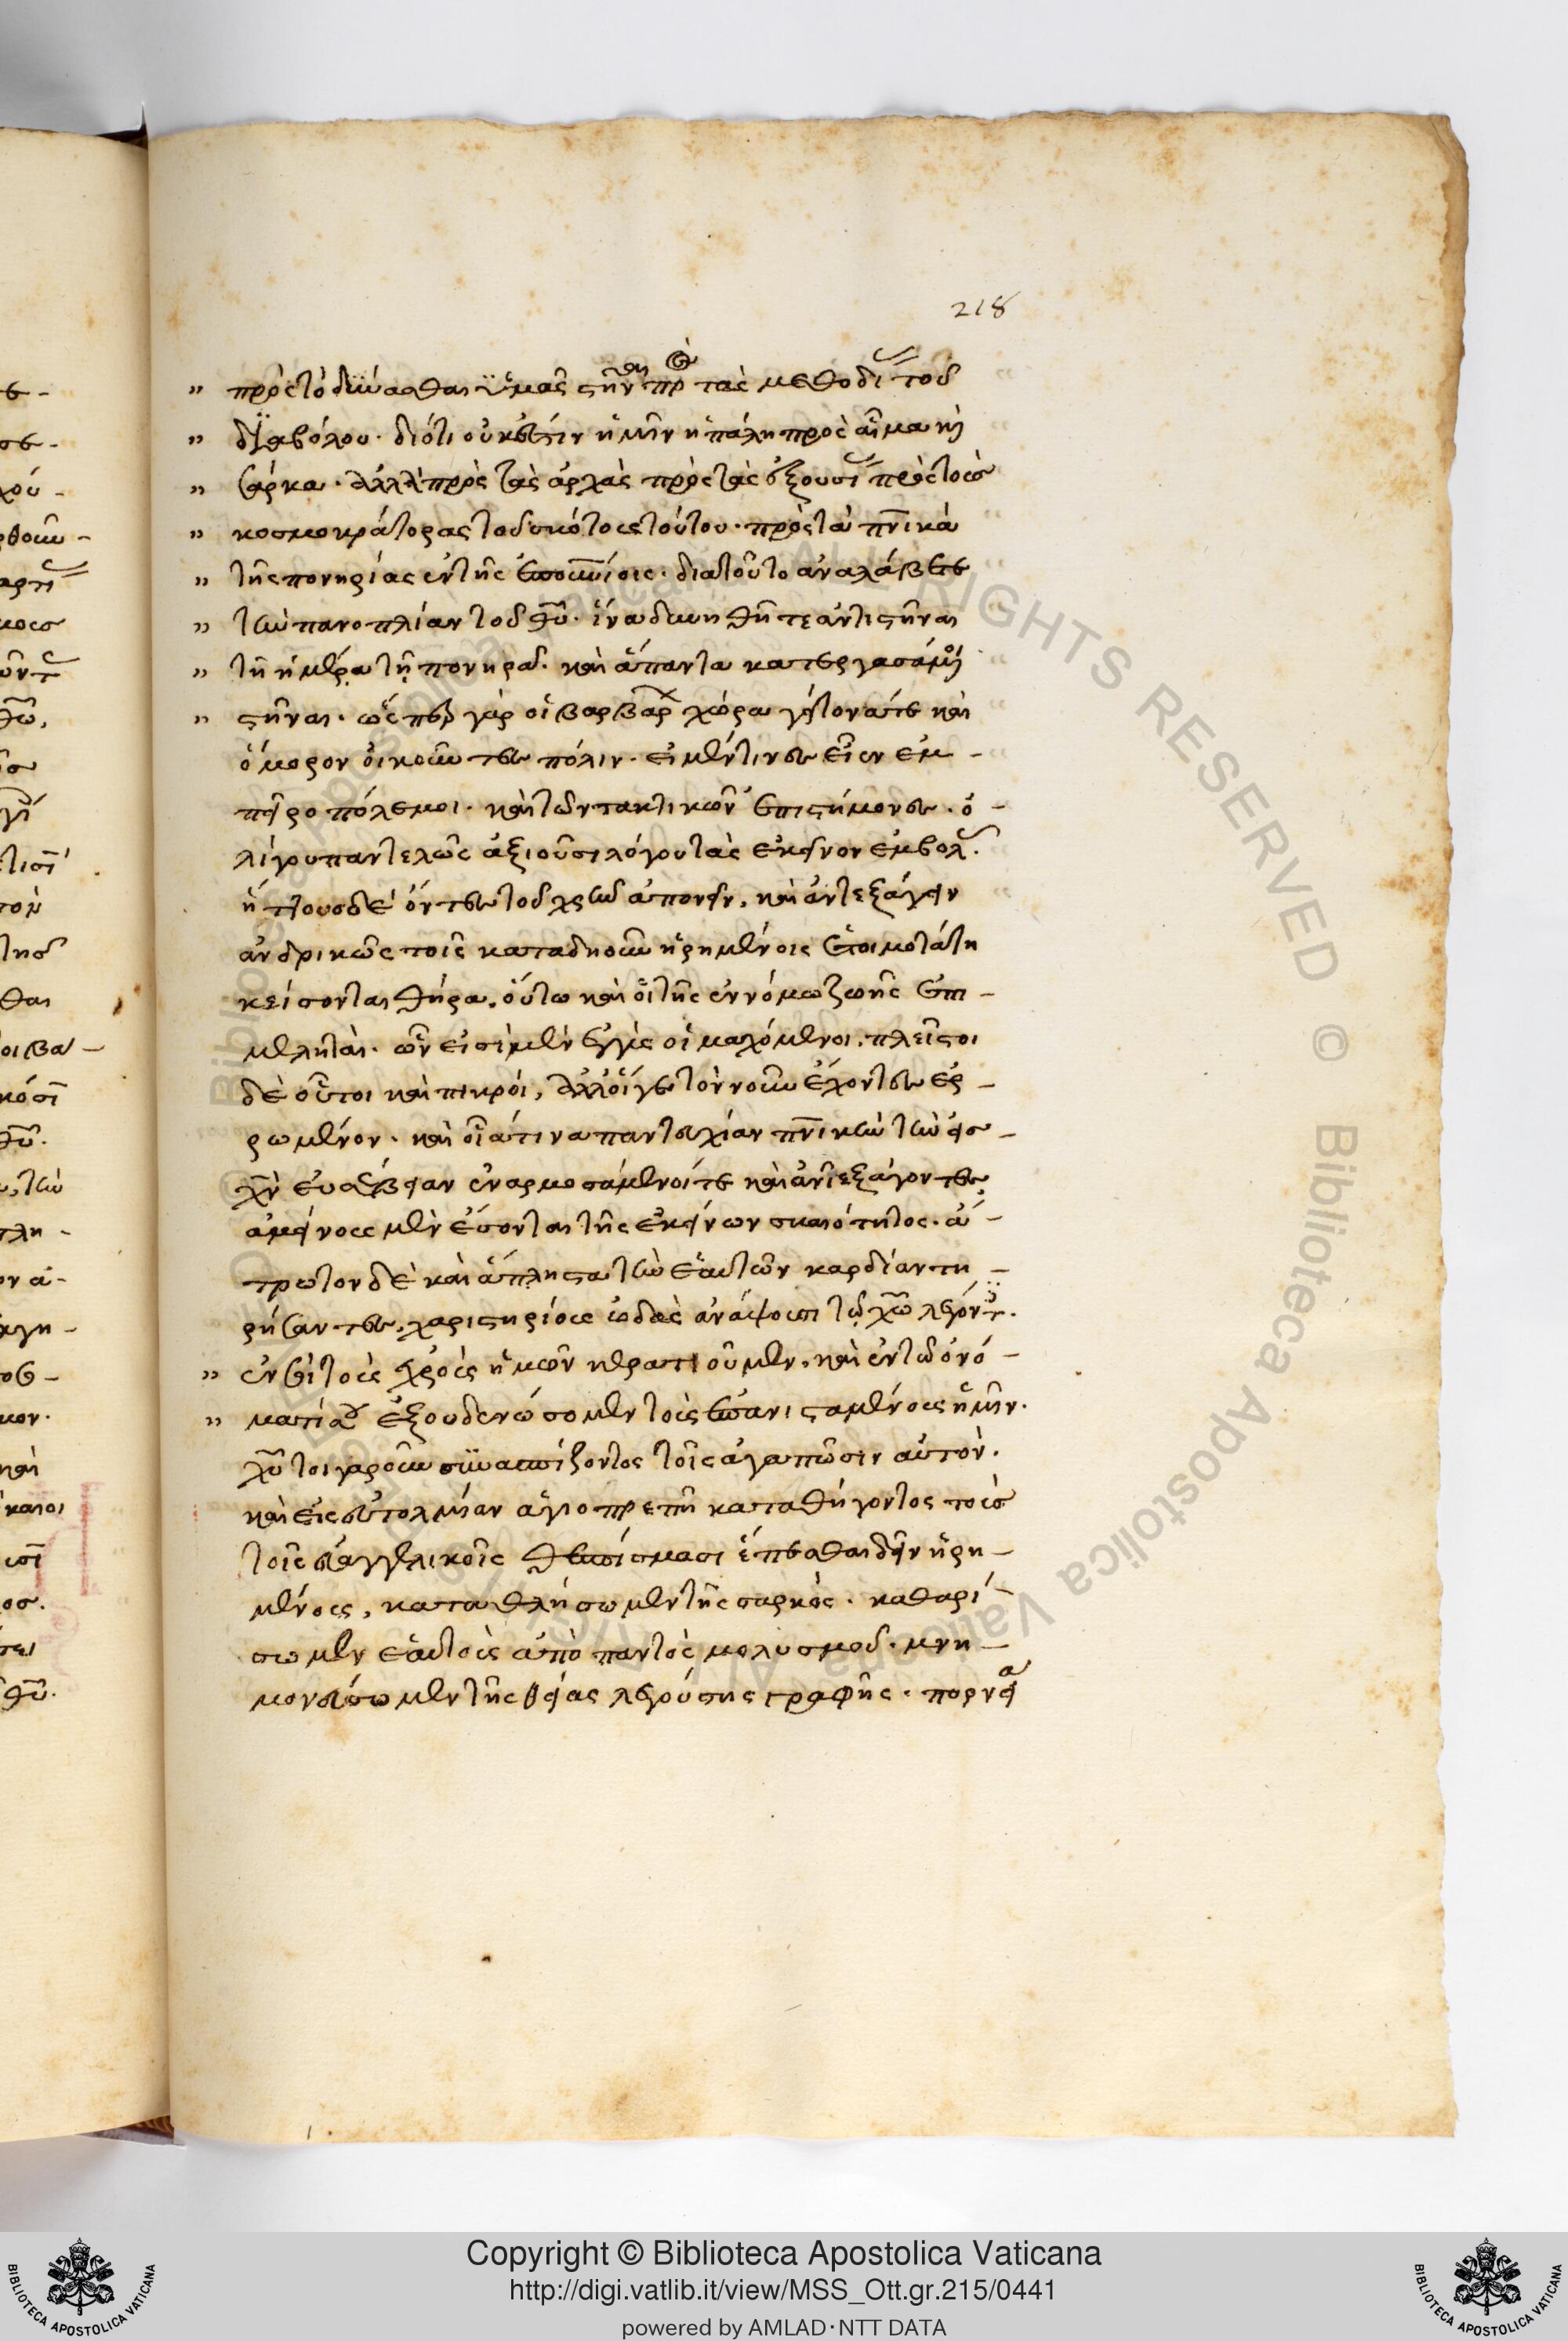 218
" πρὸς τὸ δύνασθαι ὑμᾶς στῆναι πρὸς τὰς μεθοδί τοῦ
" διαβόλου· διότι οὐκ ἔστιν ἡμῖν ἡ πάλη πρὸς αἷμα καὶ
" σάρκα· ἀλλὰ πρὸς τὰς ἀρχὰς πρὸς τὰς ἐξουσί πρὸς τοὺς
" κοσμοκράτορας τοῦ σκότους τούτου· πρὸς τὰ πνικὰ
" τῆς πονηρίας ἐν τῆς ἐπουνίοις· διατοῦτο ἀναλάβετε
" τὴν πανοπλίαν τοῦ θυ· ἵνα δυνηθῆτε ἀντιστῆναι
" τῆ ἡμέρα τῆ πονηρᾶ· καὶ ἅπαντα κατεργασάμενοι
" στῆναι· ὥσπερ γὰρ οἱ βαρβάρ χώρα γείτονά τε καὶ
ὅμορον οἰκοῦντες πόλιν· εἰ μέν τινες εἶεν ἐμ-
πειροπόλεμοι· καὶ τῶν τακτικῶν ἐπιστήμονες· ὀ-
λίγου παντελῶς ἀξιοῦσι λόγου τὰς ἐκείνον ἐμβολ
ἥττους δὲ ὄντες τοῦ χρῆ ἀπονεῖν, καὶ ἀντεξάγειν
ἀνδρικῶς τοῖς καταδηοῦν ἡρημένοις ἑτοιμοτάτη
κείσονται θήρα, οὕτω καὶ οἱ τῆς ἐννόμω ζωῆς ἐπι-
μεληταί· ὧν εἰσὶ μὲν ἐγγὺς οἱ μαχόμενοι, πλεῖστοι
δὲ οὗτοι καὶ πικροί, ἀλλοἵγε τὸν νοῦν ἔχοντες ἐρ-
ρωμένον· καὶ οἷά τινα παντευχίαν πνικὴν τὴν εἰσ-
χν εὐσέβειαν ἐναρμοσάμενοί τε καὶ ἀντεξάγοντες,
ἀμείνους μὲν ἔσονται τῆς ἐκείνων σκαιότητος· ἄ-
τρωτον δὲ καὶ ἄπληστα τὴν ἑαυτῶν καρδίαν τη-
ρήσαντες, χαριστηρίους ὠδὰς ἀνάψουσι τῷ χω λέγοντ·
" ἐν σοὶ τοὺς ἐχθροὺς ἡμῶν κερατιοῦμεν, καὶ ἐν τῶ ὀνό-
" ματί σου ἐξουδενώσομεν τοὺς ἐπανισταμένους ἡμῖν·
χυ τοιγαροῦν συνασπίζοντος τοῖς ἀγαπῶσιν αὐτόν·
καὶ εἰς εὐτολμίαν ἁγιοπρεπῆ καταθήγοντος τοὺς
τοῖς εὐαγγελικοῖς θεσπίσμασι ἕπεσθαι δεῖν ἡρη-
μένους, καταθλήσωμεν τῆς σαρκός· καθαρί-
σωμεν ἑαυτοὺς ἀπὸ παντὸς μολυσμοῦ· μνη-
μονεύσωμεν τῆς θείας λεγούσης γραφῆς· πορνεία
Copyright © Biblioteca Apostolica Vaticana
http://digi.vatlib.it/view/MSS_Ott.gr.215/0441
powered by AMLAD·NTT DATA